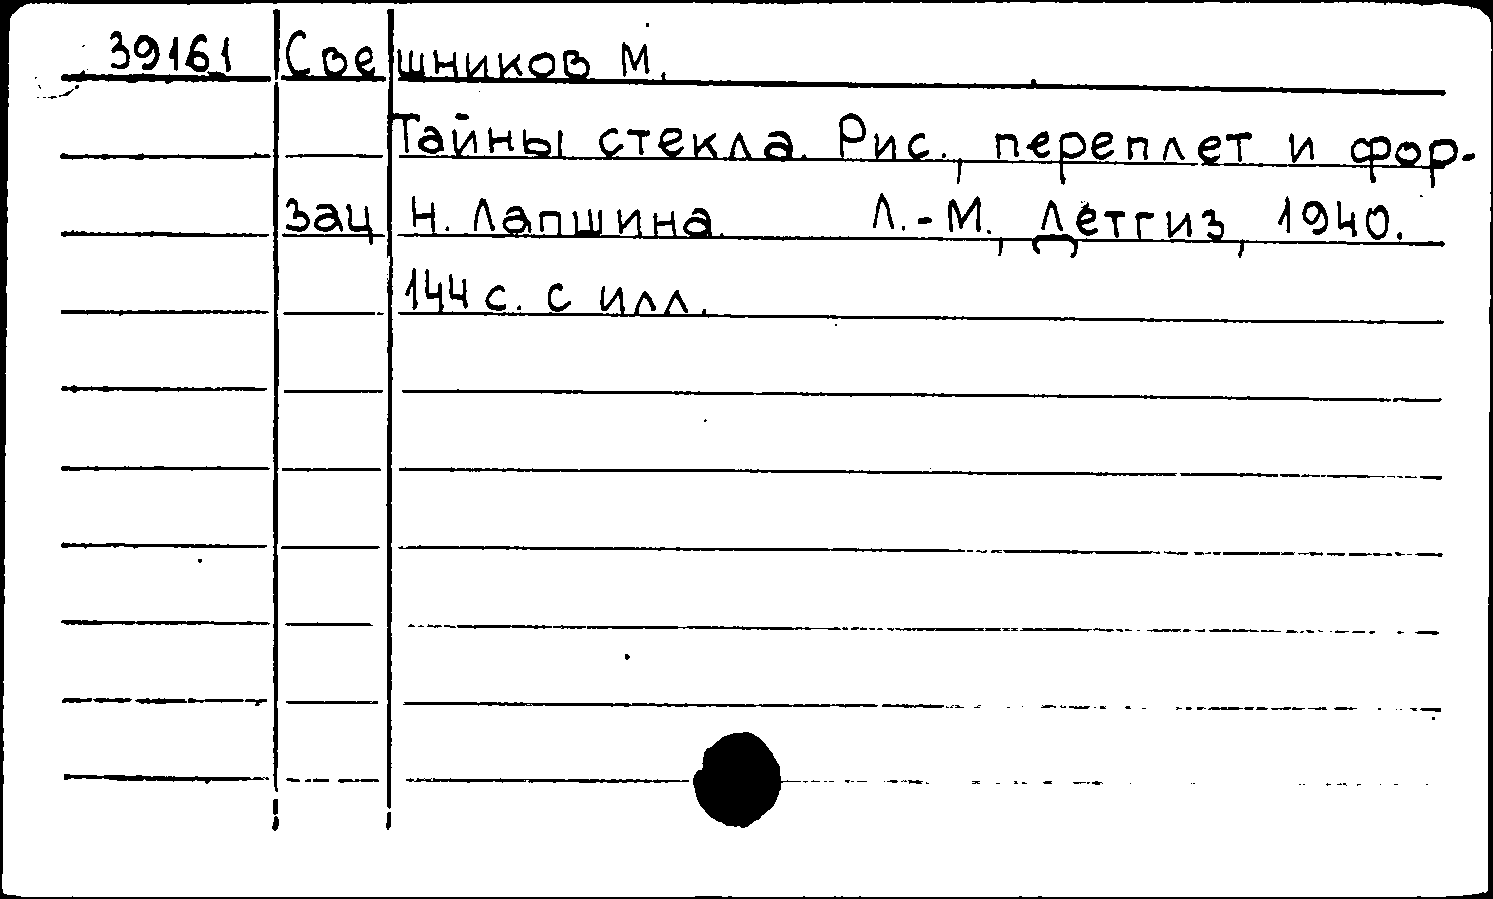 39161 Свешников М.
Тайны стекла. Рис., переплет и фор-
зац Н. Лапшина. Л.-М., Детгиз, 1940.
144 с. с илл.